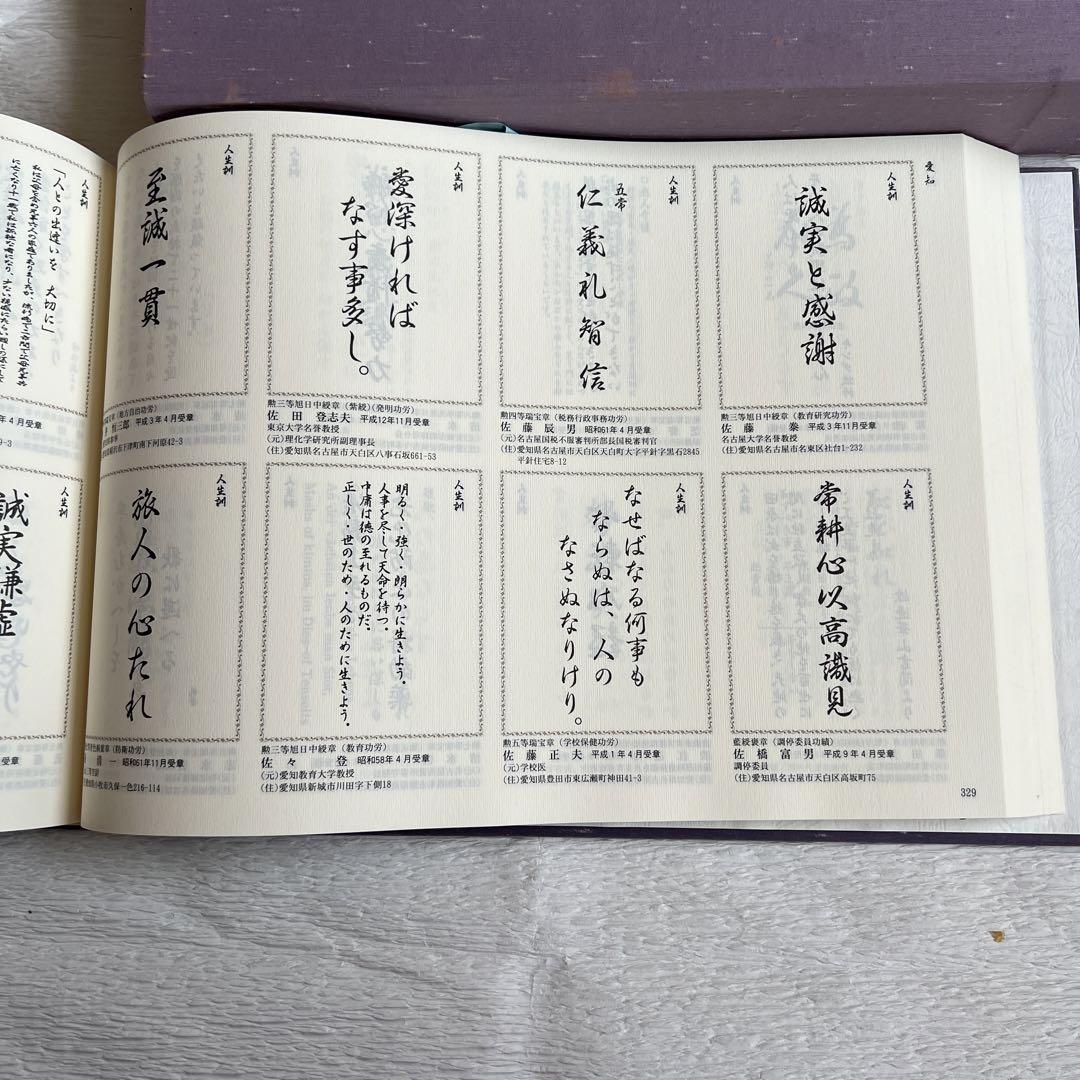 愛知
人生訓
誠実と感謝
勲三等旭日中綬章（教育研究功労）
佐藤　泰　平成３年11月受章
名古屋大学名誉教授
(住)愛知県名古屋市名東区社台1-232
人生訓
五常
仁義礼智信
勲四等瑞宝章（税務行政事務功労）
佐藤辰男　昭和61年４月受章
(元)名古屋国税不服審判所部長国税審判官
(住)愛知県名古屋市天白区天白町大字平針字黒石2845
平針住宅8-12
人生訓
愛深ければ
なす事多し。
勲三等旭日中綬章（紫綬）(発明功労)
佐田登志夫　平成12年11月受章
東京大学名誉教授
(元)理化学研究所副理事長
(住)愛知県名古屋市天白区八事石坂661-53
人生訓
至誠一貫
章（地方自治功労）
三郎　平成３年４月受章
下津町南下河原42-3
人生訓
常耕心以高識見
藍綬褒章（調停委員功績）
佐橋富男　平成９年４月受章
調停委員
(住)愛知県名古屋市天白区高坂町75
人生訓
なせばなる何事も
ならぬは、人の
なさぬなりけり。
勲五等瑞宝章（学校保健功労）
佐藤正夫　平成１年４月受章
(元)学校医
(住)愛知県豊田市東広瀬町神田41-3
人生訓
明るく・強く・朗らかに生きよう。
人事を尽して天命を待つ。
中庸は徳の至れるものだ。
正しく・世のため・人のために生きよう。
勲三等旭日中綬章（教育功労）
佐々　登　昭和58年４月受章
(元)愛知教育大学教授
(住)愛知県新城市川田字下側18
人生訓
旅人の心たれ
（防衛功労）
清一　昭和61年11月受章
小牧市久保一色216-114
329
人生訓
「人との出逢いを　大切に」
年４月受章
9-3
人生訓
誠実謙虚